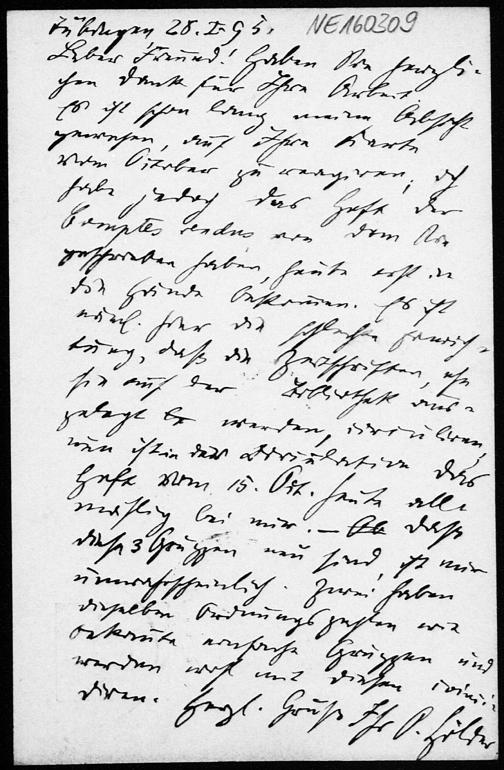 Tübingen 28. I. 95. NE160309
Lieber Freund! Haben Sie herzli-
chen Dank für Ihre Arbeit
Es ist schon lang meine Absicht
gewesen, auf Ihre Karte
vom October zu reagiren; ich
habe jedoch das Heft der
Comptes rendus von dem Sie
geschrieben haben, heute erst in
die Hände bekommen. Es ist
näml. hier die schlechte Einrich-
tung, daß die Zeitschriften, ehe
sie auf der Bibliothek aus-
gelegt werden, circuliren,
nun ist in der Circulation das
Heft vom 15. Oct. heute
bei mir. – Ob daß
diese 3 Gruppen neu sind, ist mir
unwahrscheinlich. Zwei haben
dieselben Ordnungszahlen wie
bekannte einfache Gruppen und
werden wohl mit diesen coinci-
diren. Herzl. Gruß Ihr O. Hölder